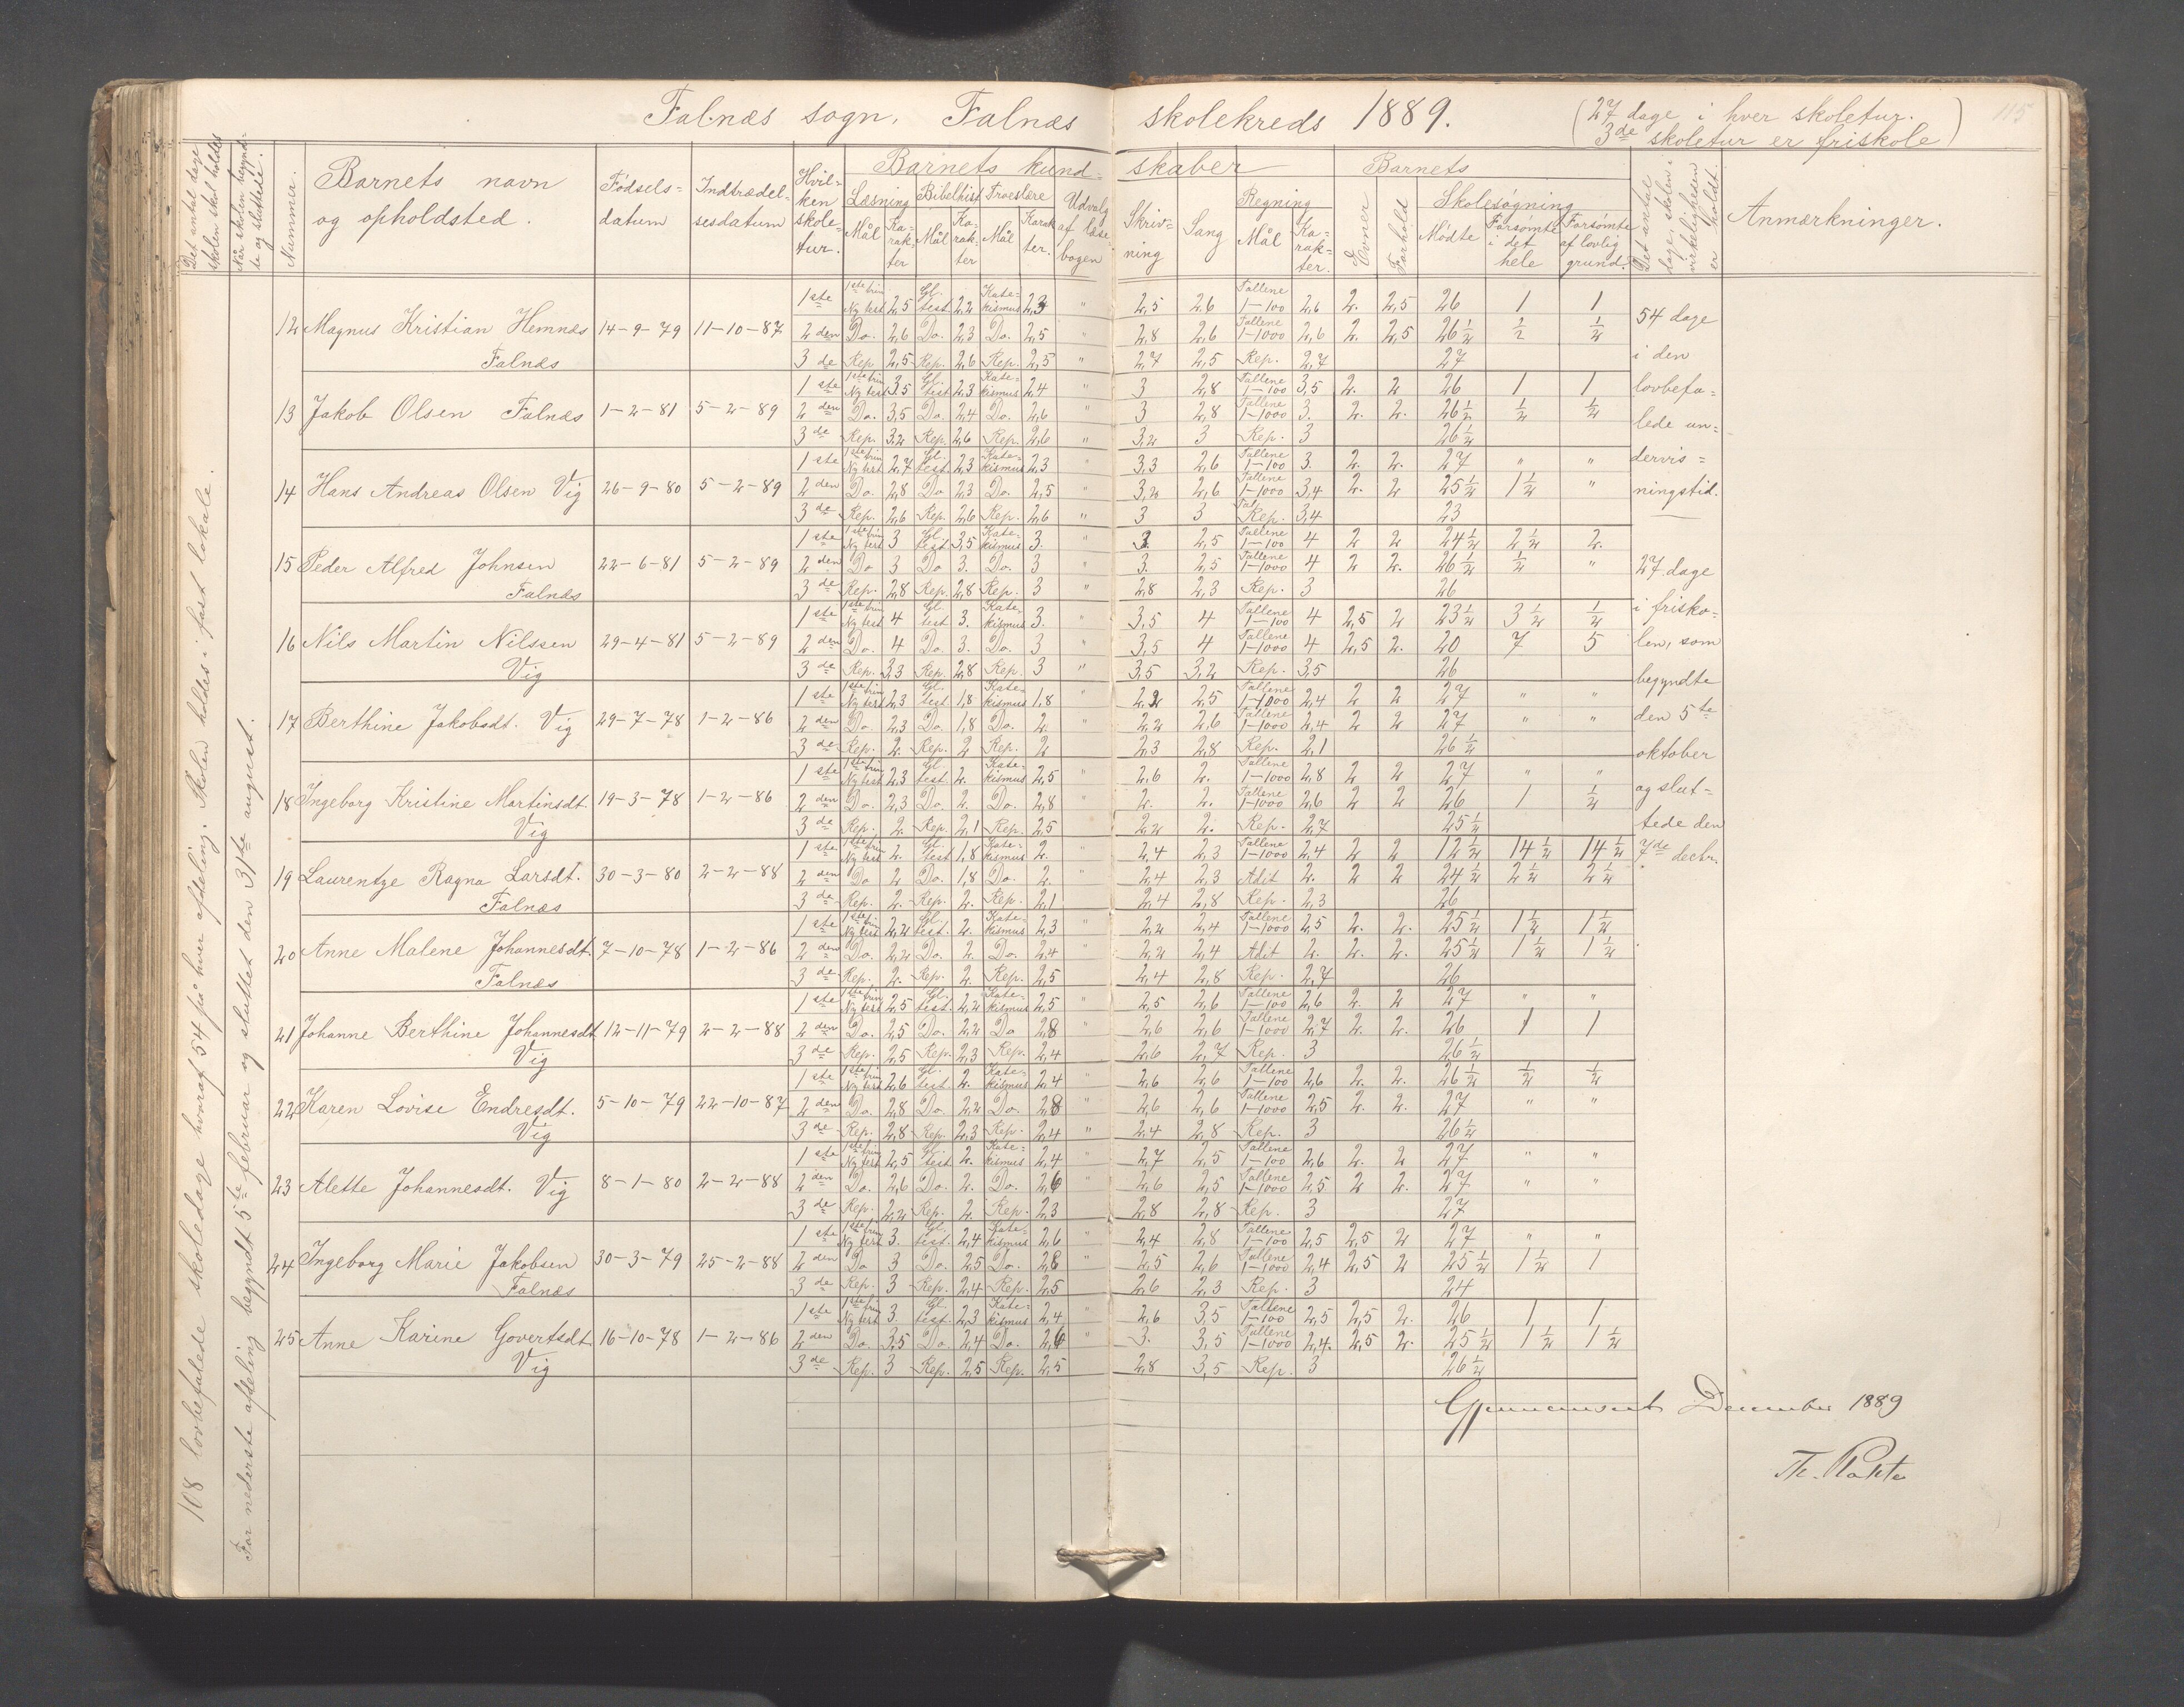 Falnæs sogn, Falnæs skolekreds 1889. (27 dage i hver skoletur.
3de skoletur er friskole)
115
Det antal dage skolen skal holdes
Når skolen begyndte og sluttede.
Nummer.
Barnets navn og opholdsted.
Fødsels=datum
Indtrædelsesdatum
Hvilken skoletur.
Barnets kundskaber
Læsning Mål Karakter
Bibelhist Mål Karakter
Troeslære Mål Karakter.
Udvalg af læsebogen
Skrivning
Sang
Regning Mål Karakter.
Barnets
Evner
Forhold
Skolesøgning
Mødte
Forsømte i det hele
Forsømte af lovlig grund.
Det antal dage, skolen i virkeligheden er holdt.
Anmærkninger.
108 lovbefalede skoledage hvoraf 54 på hver afdeling. Skolen holdes i fast lokale.
For nederste afdeling begyndt 5te februar og sluttet den 31te august.
12 Magnus Kristian Hemnæs Falnæs 14-9-79 11-10-87
1ste 1ste trin Ny test 2,5 Gl. test 2,2 Katekismus 2,3 " 2,5 2,6 Tallene 1-100 2,6 2. 2,5 26 1 1
2den Do. 2,6 Do. 2,3 Do. 2,5 " 2,8 2,6 Tallene 1-1000 2,6 2. 2,5 26½ ½ ½
3de Rep. 2,5 Rep. 2,6 Rep. 2,5 " 2,7 2,5 Rep. 2,7 27
13 Jakob Olsen Falnæs 1-2-81 5-2-89
1ste 1ste trin Ny test 3,5 Gl. test 2,3 Katekismus 2,4 " 3 2,8 Tallene 1-100 3,5 2. 2 26 1 1
2den Do. 3,5 Do. 2,4 Do. 2,6 " 3 2,8 Tallene 1-1000 3. 2. 2. 26½ ½ ½
3de Rep. 3,2 Rep. 2,6 Rep. 2,6 " 3,2 3 Rep. 3 26½
14 Hans Andreas Olsen Vig 26-9-80 5-2-89
1ste 1ste trin Ny test 2,7 Gl. test 2,3 Katekismus 2,3 " 3,3 2,6 Tallene 1-100 3. 2. 2. 27 " "
2den Do. 2,8 Do. 2,3 Do. 2,5 " 3,2 2,6 Tallene 1-1000 3,4 2. 2 25½ 1½ "
3de Rep. 2,6 Rep. 2,6 Rep. 2,6 " 3 3 Rep. 3,4 23
15 Peder Alfred Johnsen Falnæs 22-6-81 5-2-89
1ste 1ste trin Ny test 3 Gl. test 3,5 Katekismus 3. " 3. 2,5 Tallene 1-100 4 2 2 24½ 2½ 2.
2den Do 3 Do 3. Do. 3 " 3. 2,5 Tallene 1-1000 4 2 2. 26½ ½ "
3de Rep. 2,8 Rep. 2,8 Rep. 3 " 2,8 2,3 Rep. 3 26
16 Nils Martin Nilssen Vig 29-4-81 5-2-89
1ste 1ste trin Ny test 4 Gl. test 3. Katekismus 3. " 3,5 4 Tallene 1-100 4 2,5 2 23½ 3½ ½
2den Do. 4 Do. 3. Do. 3 " 3,5 4 Tallene 1-1000 4 2,5 2. 20 7 5
3de Rep. 3,3 Rep. 2,8 Rep. 3 " 3,5 3,2 Rep. 3,5 26
17 Berthine Jakobsdt. Vig 29-7-78 1-2-86
1ste 1ste trin Ny test 2,3 Gl. test 1,8 Katekismus 1,8 " 2,2 2,5 Tallene 1-1000 2,4 2 2 27 " "
2den Do. 2,3 Do. 1,8 Do. 2. " 2,2 2,6 Tallene 1-1000 2,4 2 2 27 " "
3de Rep. 2. Rep. 2 Rep. 2 2,3 2,8 Rep. 2,1 26½
18 Ingeborg Kristine Martinsdt. Vig 19-3-78 1-2-86
1ste 1ste trin Ny test 2,3 Gl. test 2. Katekismus 2,5 " 2,6 2. Tallene 1-1000 2,8 2 2 27 " "
2den Do. 2,3 Do. 2. Do. 2,8 " 2. 2. Tallene 1-1000 2,6 2 2 26 1 ½
3de Rep. 2. Rep. 2,1 Rep. 2,5 2,2 2. Rep. 2,7 25½
19 Laurentze Ragna Larsdt. Falnæs 30-3-80 2-2-88
1ste 1ste trin Ny test 2. Gl. test 1,8 Katekismus 2. " 2,4 2,3 Tallene 1-1000 2,4 2 2 12½ 14½ 14½
2den Do 2 Do. 1,8 Do. 2. 2,4 2,3 Adit 2. 2 2 24½ 2½ 2½
3de Rep. 2. Rep. 2. Rep. 2,1 2,4 2,8 Rep. 2,3 26
20 Anne Malene Johannesdt. Falnæs 7-10-78 1-2-86
1ste 1ste trin Ny test 2,2 Gl. test. 2. Katekismus 2,3 " 2,2 2,4 Tallene 1-1000 2,5 2. 2. 25½ 1½ 1½
2den Do. 2,2 Do. 2 Do. 2,4 " 2,2 2,4 Adit 2. 2. 2. 25½ 1½ 1½
3de Rep. 2. Rep. 2. Rep. 2,5 2,4 2,8 Rep. 2,7 26
21 Johanne Berthine Johannesdt Vig 12-11-79 2-2-88
1ste 1ste trin Ny test 2,5 Gl. test. 2,2 Katekismus 2,5 " 2,5 2,6 Tallene 1-100 2,6 2. 2 27 " "
2den Do. 2,5 Do. 2,2 Do 2,8 " 2,6 2,6 Tallene 1-1000 2,7 2. 2. 26 1 1
3de Rep. 2,5 Rep. 2,3 Rep. 2,4 2,6 2,7 Rep. 3 26½
22 Karen Lovise Endresdt. Vig 5-10-79 22-10-87
1ste 1ste trin Ny test 2,6 Gl. test. 2. Katekismus 2,4 " 2,6 2,6 Tallene 1-100 2,6 2. 2. 26½ ½ ½
2den Do. 2,8 Do. 2,2 Do. 2,8 " 2,6 2,6 Tallene 1-1000 2,5 2. 2. 27 " "
3de Rep. 2,8 Rep. 2,3 Rep. 2,4 " 2,4 2,8 Rep. 3 26½
23 Alette Johannesdt. Vig 8-1-80 2-2-88
1ste 1ste trin Ny test 2,5 Gl. test 2. Katekismus 2,4 " 2,7 2,5 Tallene 1-100 2,6 2. 2 27 " "
2den Do. 2,6 Do. 2. Do. 2,6 " 2,6 2,5 Tallene 1-1000 2,5 2 2. 27 " "
3de Rep. 2,2 Rep. 2. Rep. 2,3 2,8 2,8 Rep. 3 27
24 Ingeborg Marie Jakobsen Falnæs 30-3-79 25-2-88
1ste 1ste trin Ny test 3. Gl. test. 2,4 Katekismus 2,6 " 2,4 2,8 Tallene 1-100 2,5 2,5 2 27 " "
2den Do 3 Do. 2,5 Do. 2,8 " 2,5 2,6 Tallene 1-1000 2,4 2,5 2 25½ 1½ 1
3de Rep. 3 Rep. 2,4 Rep. 2,5 2,6 2,3 Rep. 3 24
25 Anne Karine Govertsdt. Vig 16-10-78 1-2-86
1ste 1ste trin Ny test 3. Gl. test. 2,3 Katekismus 2,4 " 2,6 3,5 Tallene 1-100 2,5 2,5 2. 26 1 1
2den Do. 3,5 Do. 2,4 Do. 2,6 " 3. 3,5 Tallene 1-1000 2,4. 2,5 2. 25½ 1½ 1½
3de Rep. 3 Rep. 2,5 Rep. 2,5 2,8 3,5 Rep. 3 26½
54 dage
i den
lovbefa=
lede un=
dervis=
ningstid.
27 dage
i frisko=
len, som
begyndte
den 5te
oktober
og slut=
tede den
7de decbr.
Gjennemseet December 1889